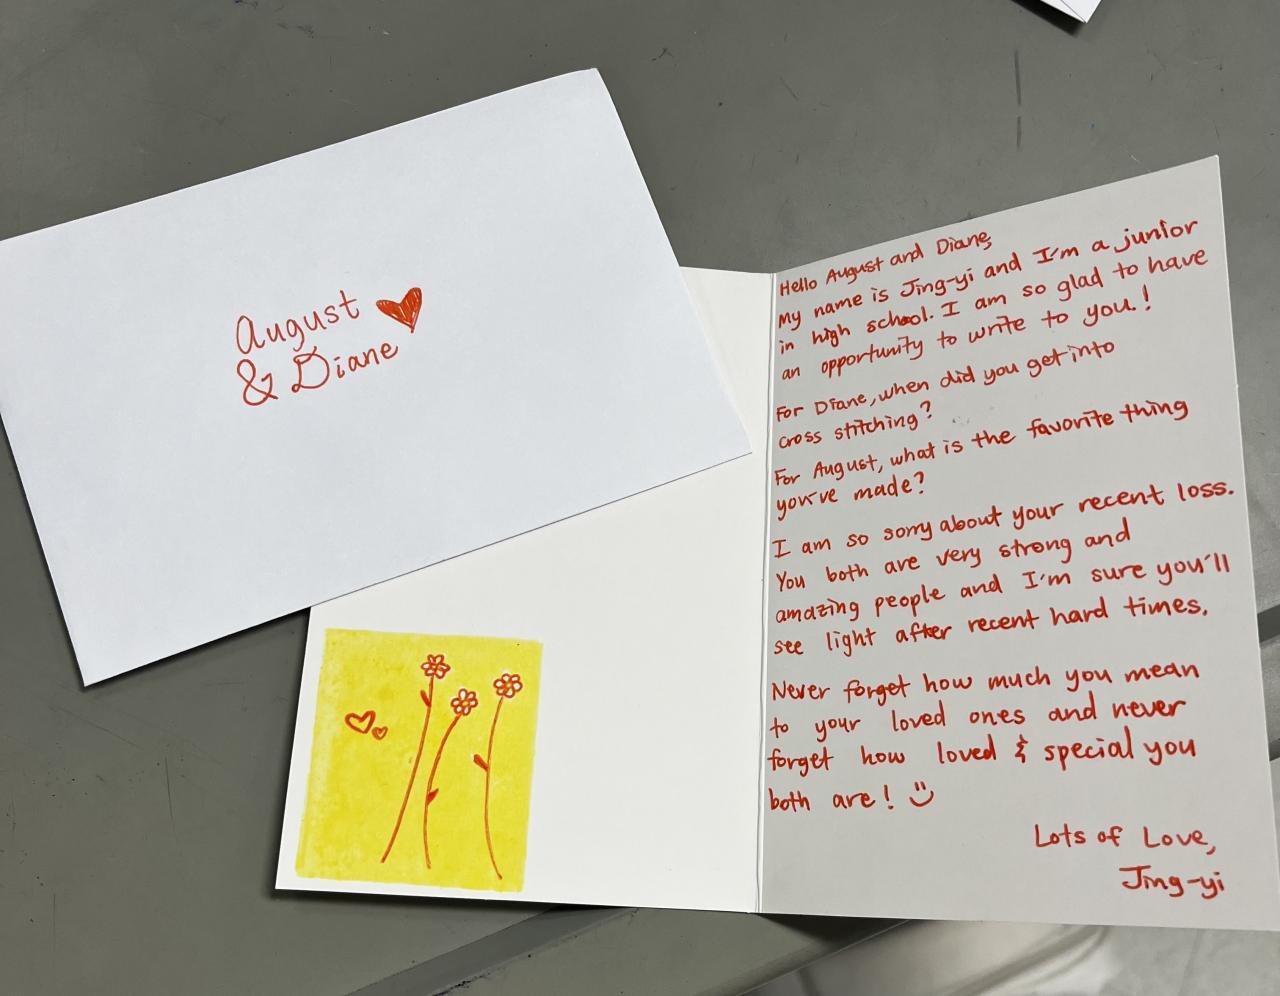 August
& Diane
Hello August and Diane,
My name is Jing-yi and I'm a junior
in high school. I am so glad to have
an opportunity to write to you!
For Diane, when did you get into
cross stitching?
For August, what is the favorite thing
you've made?
I am so sorry about your recent loss.
You both are very strong and
amazing people and I'm sure you'll
see light after recent hard times.
Never forget how much you mean
to your loved ones and never
forget how loved & special you
both are! :)
Lots of Love,
Jing-yi